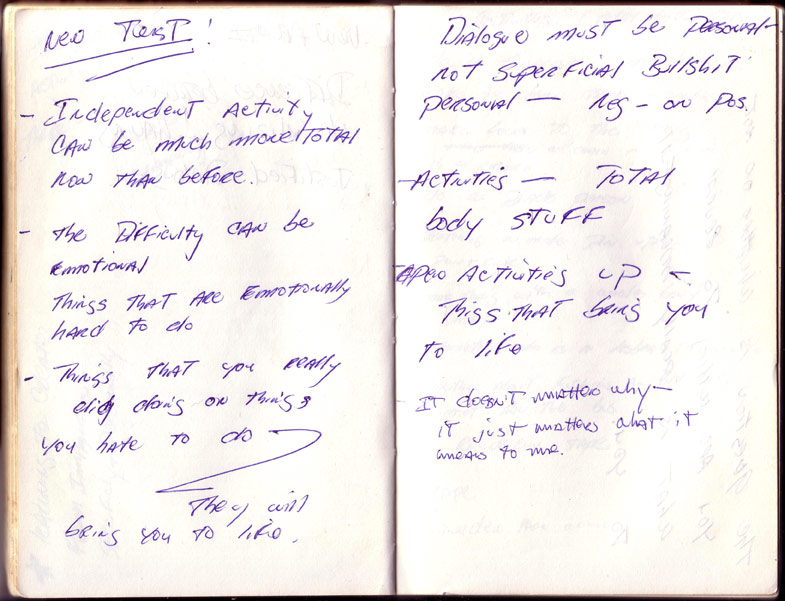 New Test!
- Independent Activity
can be much more Total
now than before.
- the Difficulty can be
Emotional
Things that are Emotionally
hard to do
- Things that you really
dig doing or things
you hate to do
They will
bring you to life.
Dialogue must be personal-
not superficial Bullshit
personal — neg - or pos.
- Activities — Total
body stuff
Activities up -
Thigs that bring you
to life
It doesn't matter why -
it just matters what it
means to me.